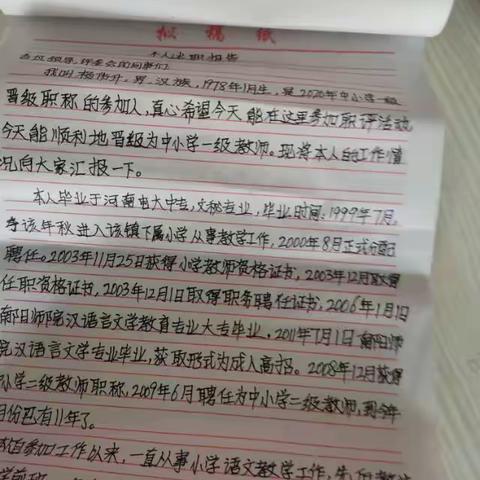 拟稿纸
本人述职报告
各位领导,评委会的同事们:
我叫杨,男,汉族,1978年1月生,是2020年中小学一级
晋级职称的参加人,真心希望今天能在这里参加职评活动,
今天能顺利地晋级为中小学一级教师。现将本人的工作情
况向大家汇报一下。
本人毕业于河南电大中专,文秘专业,毕业时间:1997年7月。
于该年秋进入该镇下属小学从事教学工作,2000年8月正式
聘任。2003年11月25日获得小学教师资格证书,2003年12月取得
任职资格证书,2003年12月1日取得职务聘任证书,2006年1月1日
南阳师院汉语言文学教育专业大专毕业,2011年7月1日南阳师
院汉语言文学专业毕业,获取形式为成人高招。2008年12月获得
小学二级教师职称,2009年6月聘任为中小学二级教师,到今年
月份已有11年了。
自参加工作以来,一直从事小学语文教学工作,先后教
学前班